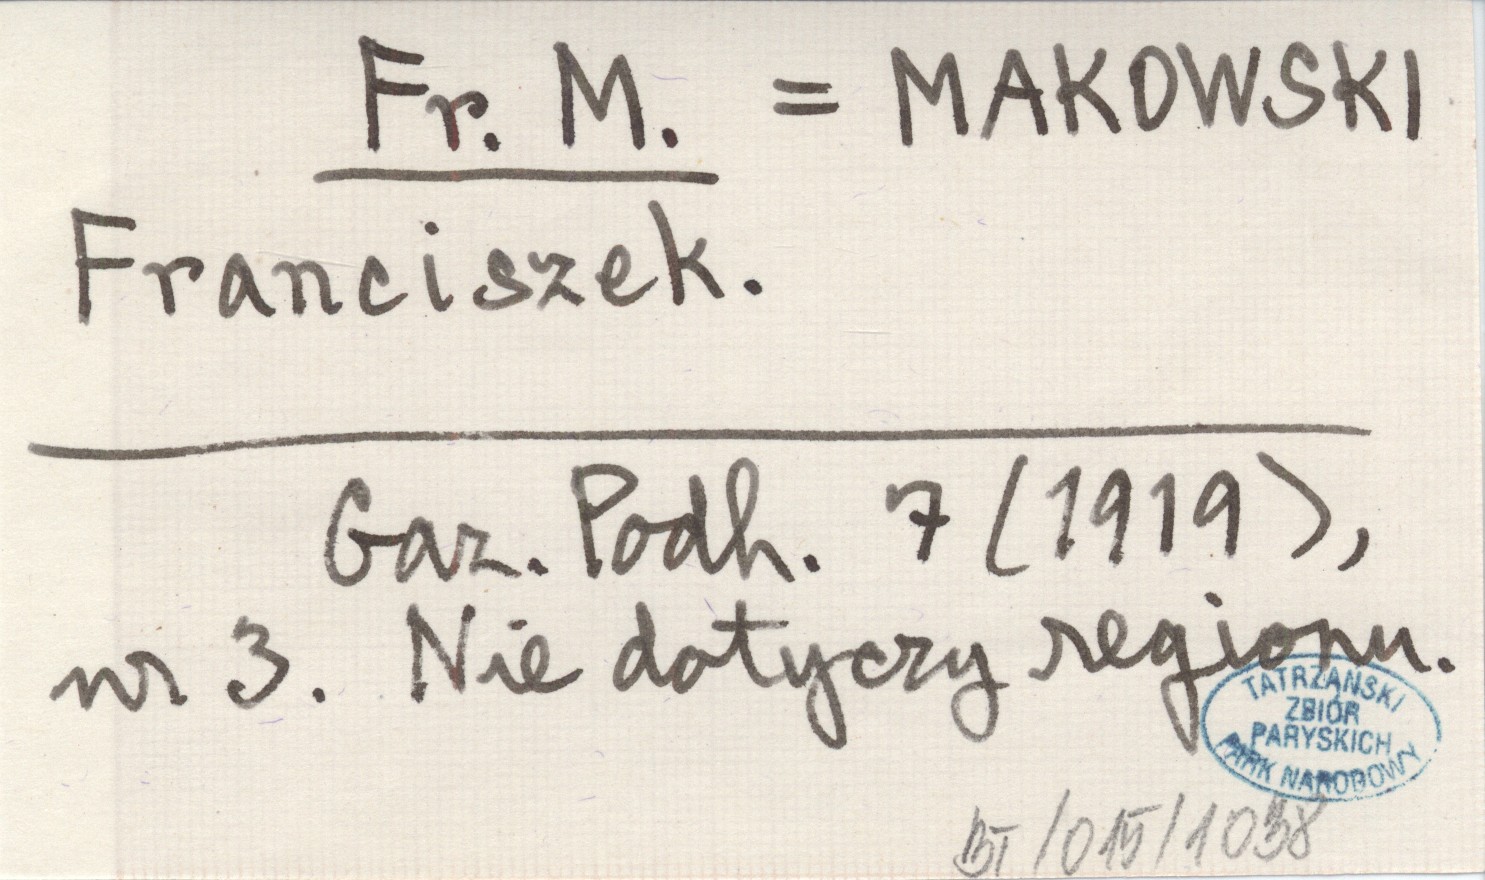 Fr. M. = MAKOWSKI
Franciszek.
Gaz. Podh. 7 (1919),
nr 3. Nie dotyczy regionu.
TATRZAŃSKI
ZBIÓR
PARYSKICH
PARK NARODOWY
BI/015/1038